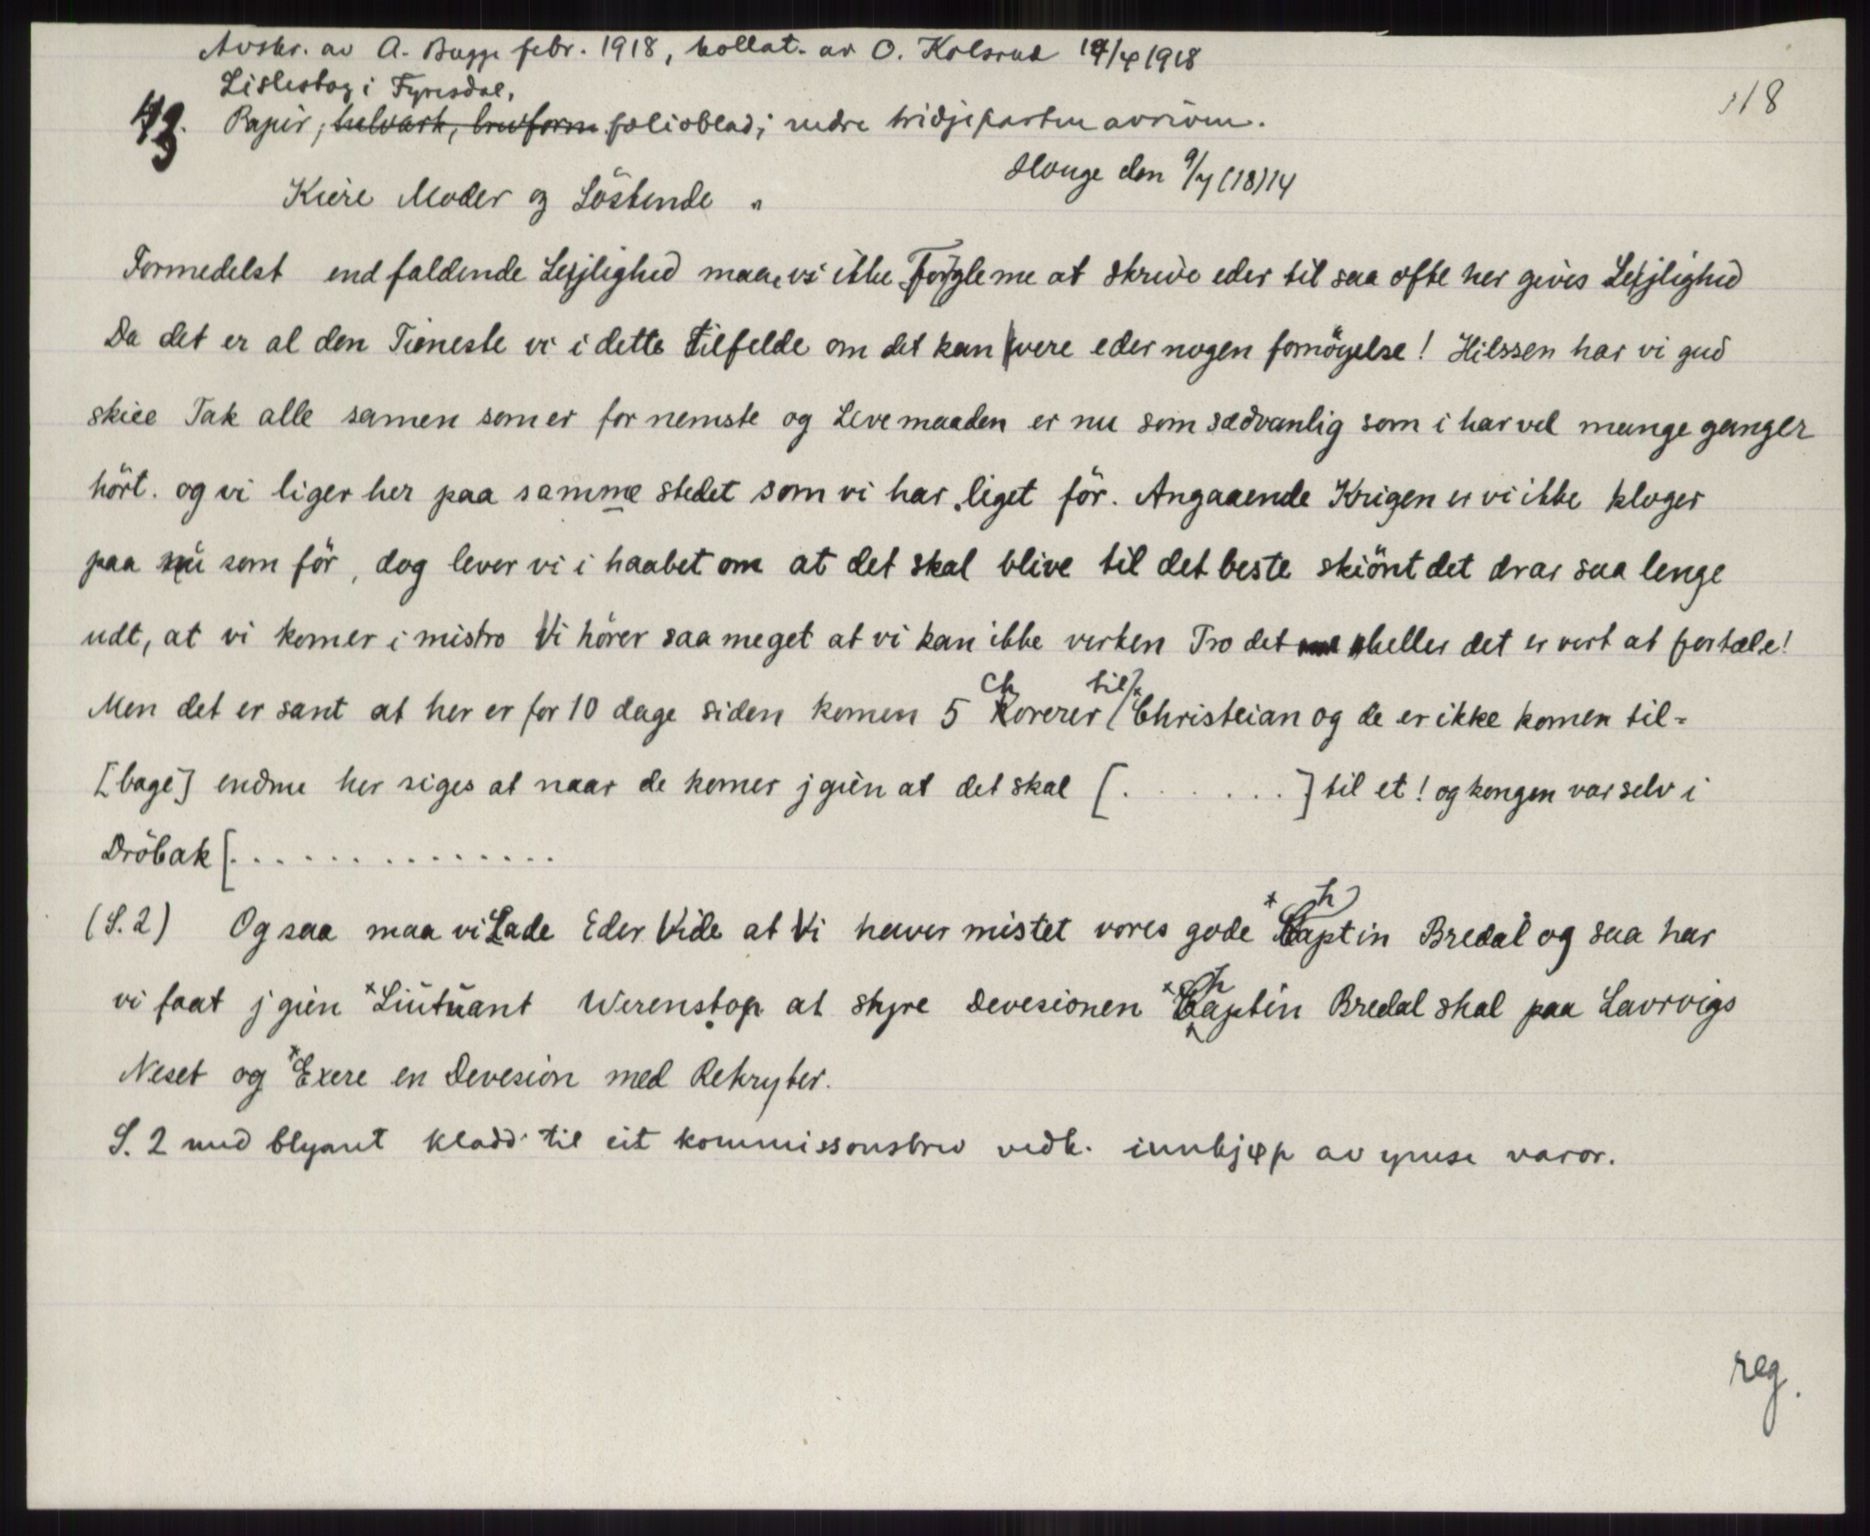 Avskr. av A. Bugge febr. 1918, kollat. av O. Kolsrud 17/4 1918
Lislestog i Fyresdal,
118
43. Papir, helvark, brevform folioblad; nedre tridjeparten avriven.
Houge den 9/7 (18)14
Kiere Moder og Söskende „
Formedelst end faldende Lejlighed maa vi ikke Forgleme at skrive eder til saa ofte her gives Lejlighed
Da det er al den Tieneste vi i dette Tilfelde om det kan vere eder nogen fornöyelse! Hilssen har vi gud
skiee Tak alle samen som er for nemste og Leve maaden er nu som sædvanlig som i har vel mange ganger
hört. og vi liger her paa samme stedet som vi har liget för. Angaaende Krigen er vi ikke kloger
paa nu som för, dog lever vi i haabet om at det skal blive til det beste skiönt det drar saa lenge
udt, at vi komer i mistro Vi hörer saa meget at vi kan ikke verken Tro det heller det er vert at fortæle!
Men det er sant at her er for 10 dage siden komen 5 Korerer til Christeian og de er ikke komen til=
[bage] endnu her siges at naar de komer j gien at det skal [. . . . . . .] til et! og kongen var selv i
Dröbak [. . . . . . . . . . . . . .
(S. 2) Og saa maa vi Lade Eder Vide at Vi haver mistet vores gode *Captin Bredal og saa har
vi faat j gien *Liutuant Werenstop at styre Devesionen *Captin Bredal skal paa Lavrvigs
Neset og *Exere en Devesion med Rekryter.
S. 2 med blyant kladd til eit kommissonsbrev vedk. innkjøp av ymse varor.
reg.